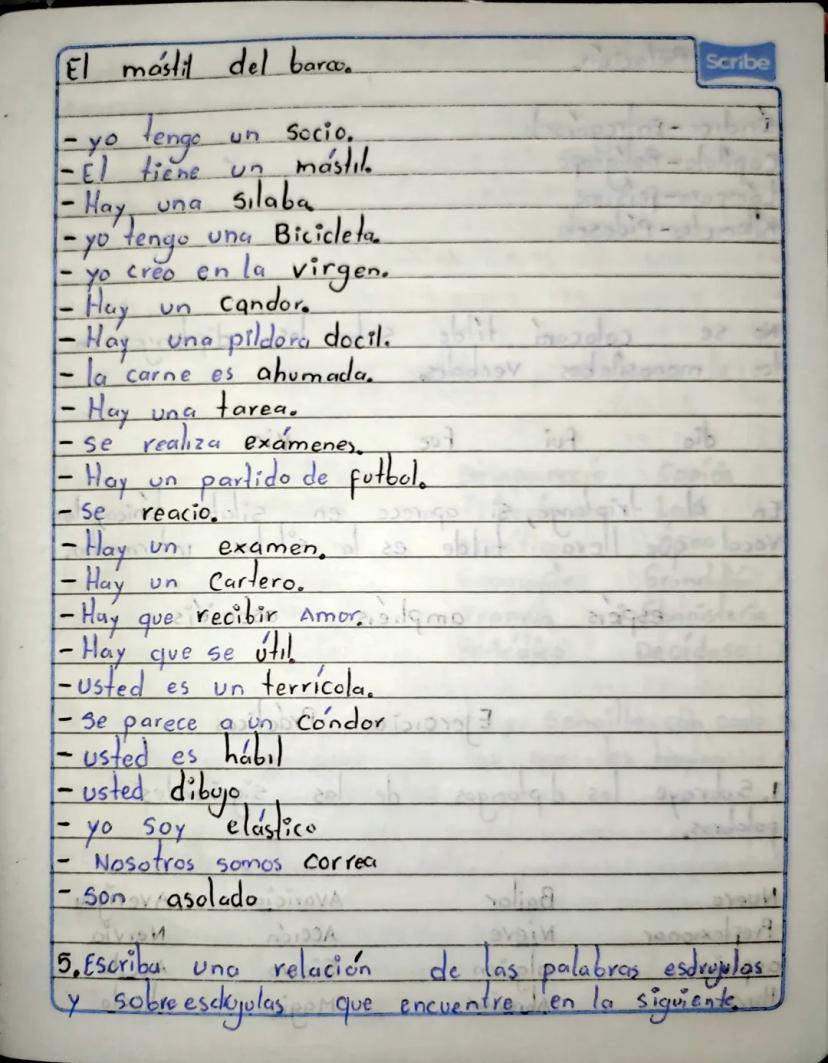 El mástil del barco.
Scribe
- yo tengo un socio.
- El tiene un mástil.
- Hay una sılaba
- yo tengo una Bicicleta.
- yo creo en la virgen.
- Hay un candor.
- Hay una pildora docil.
- la carne es ahumada.
- Hay una tarea.
- se realiza exámenes.
- Hay un partido de futbol.
- se reacio.
- Hay un examen.
- Hay un Cartero.
- Hay que recibir Amor.
- Hay que se útil
- usted es un terrícola.
- se parece a un cóndor
- usted es hábil
- usted dibujo
- yo soy elástico
- Nosotros somos correa
- son asolado
5. Escriba una relación de las palabras esdrujulas
y sobreesdujulas que encuentre en la siguiente.